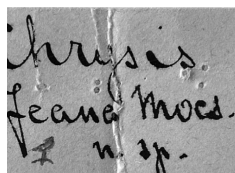 Chrysis
Jeanne Mocs.
n. sp.